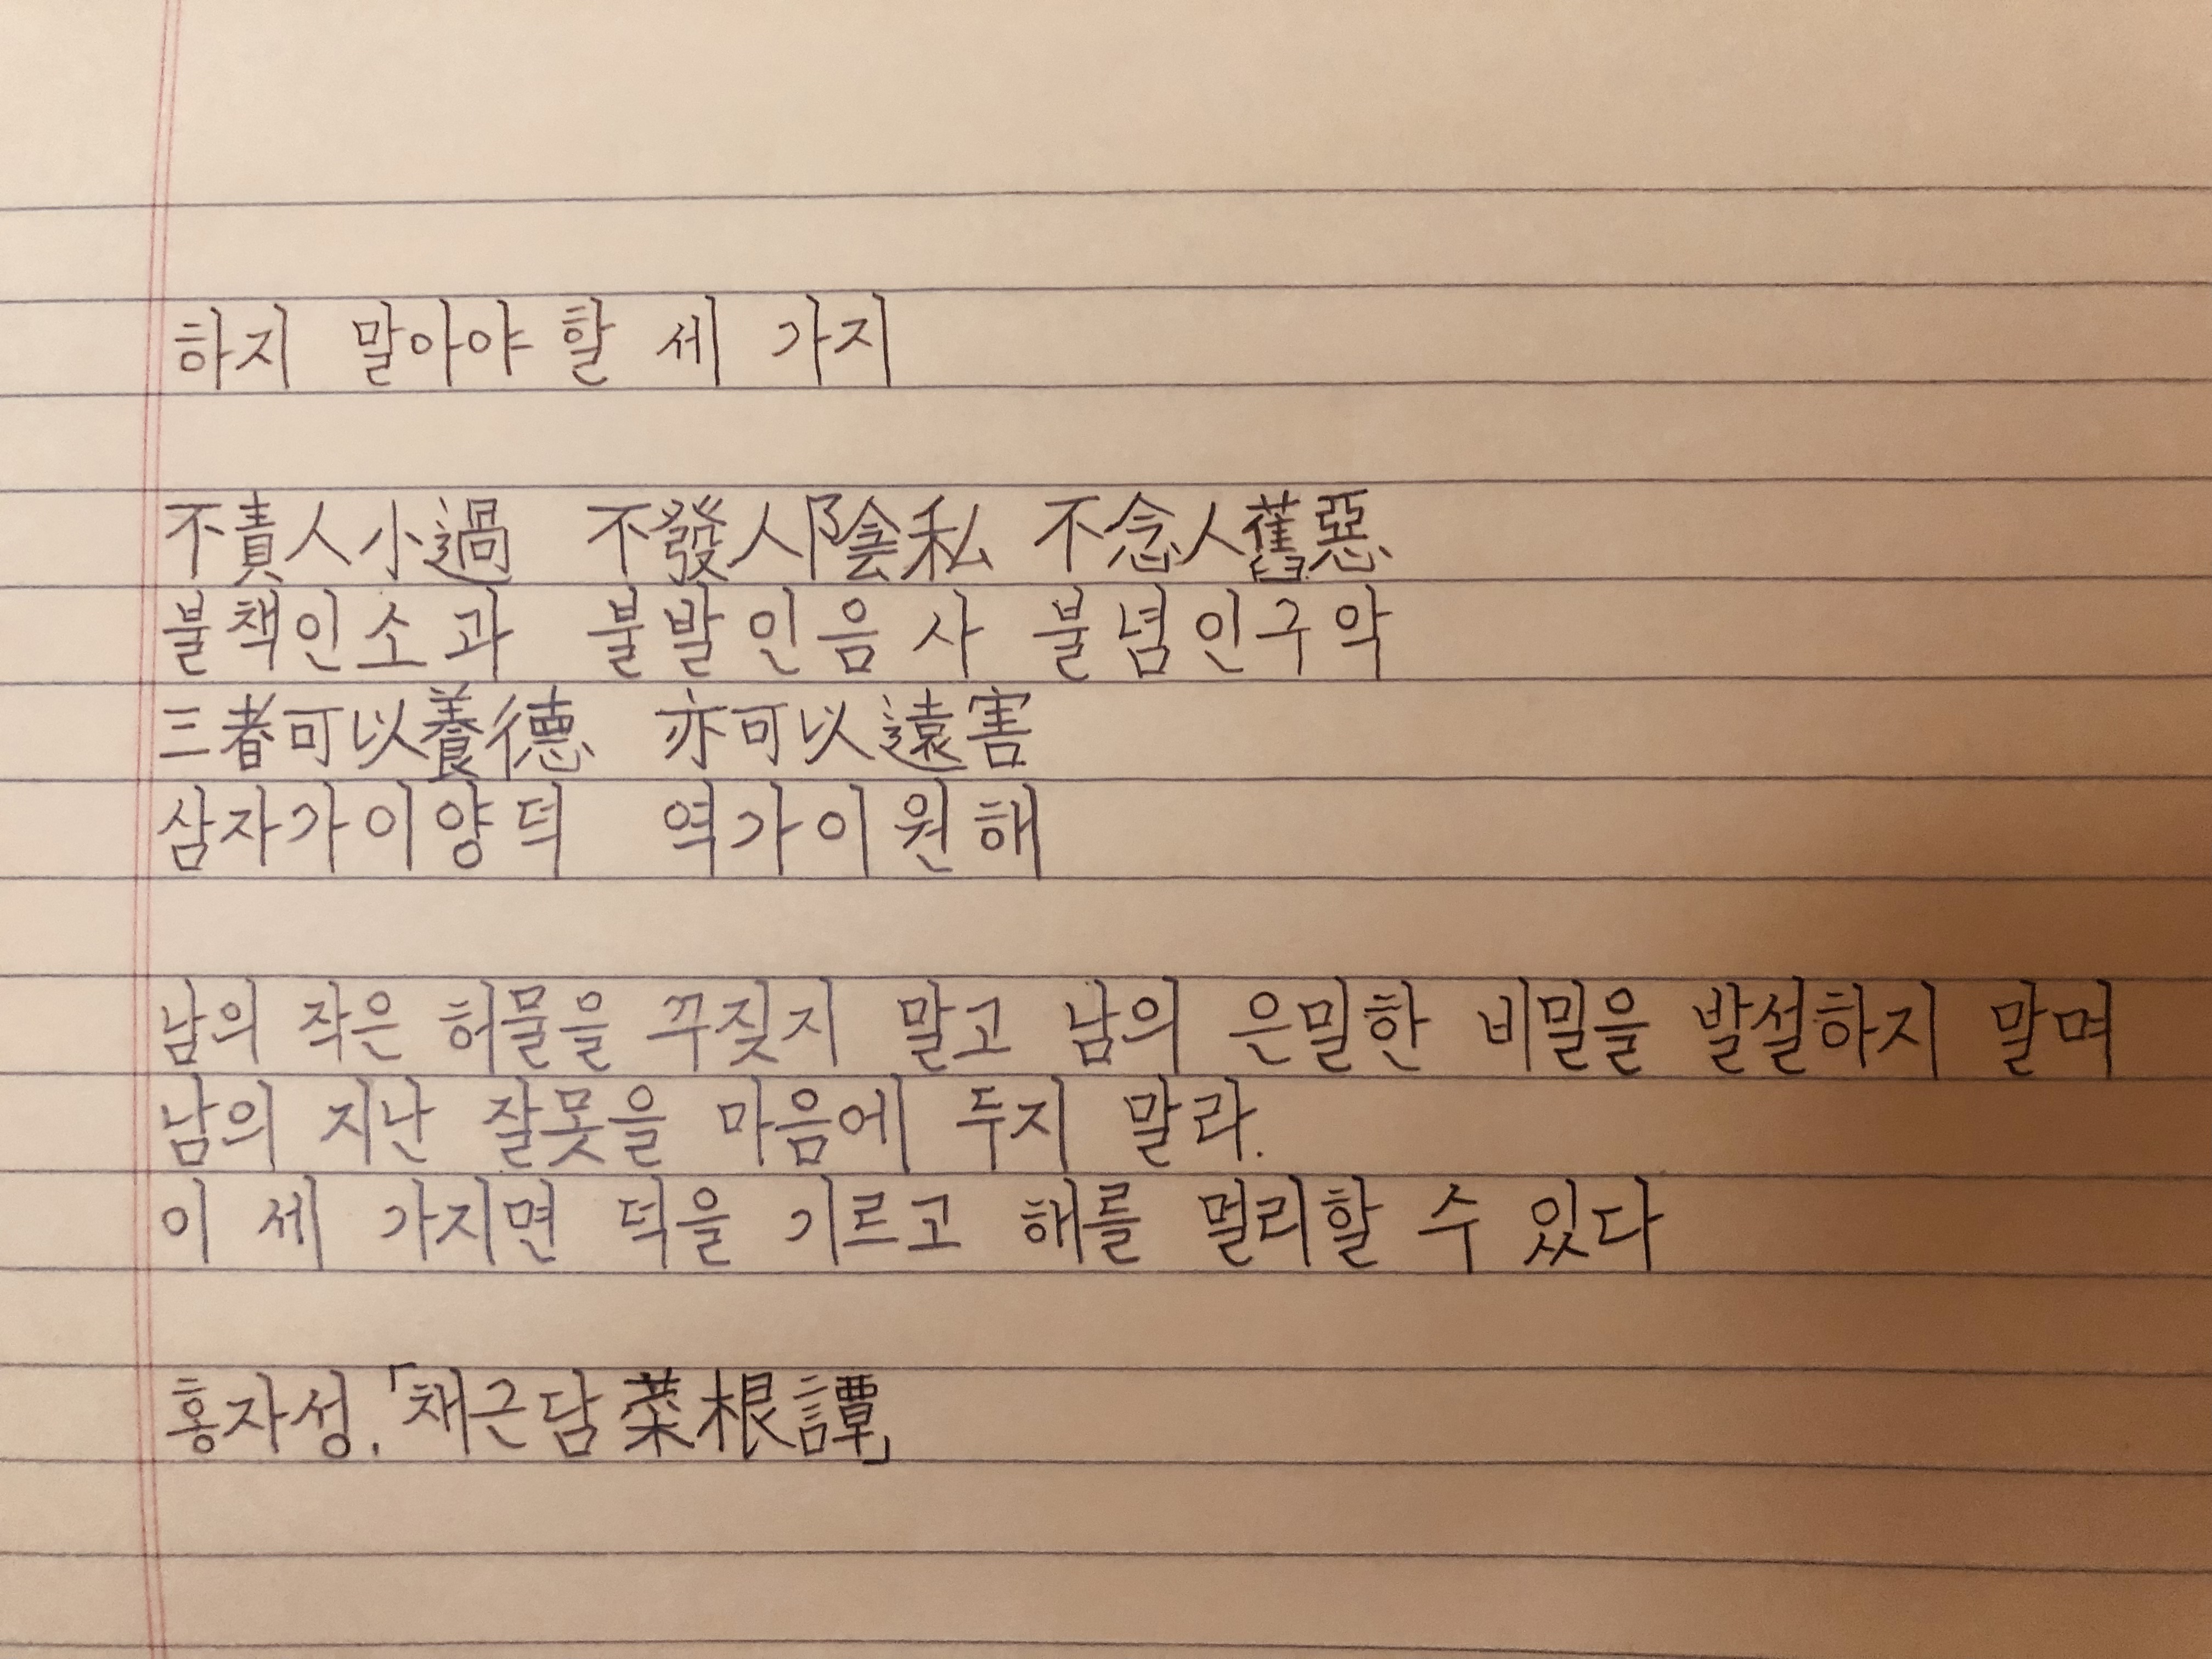 하지 말아야 할 세 가지
不責人小過 不發人陰私 不念人舊惡
불책인소과 불발인음사 불념인구악
三者可以養德 亦可以遠害
삼자가이양덕 역가이원해
남의 작은 허물을 꾸짖지 말고 남의 은밀한 비밀을 발설하지 말며
남의 지난 잘못을 마음에 두지 말라.
이 세 가지면 덕을 기르고 해를 멀리할 수 있다
홍자성.「채근담菜根譚」